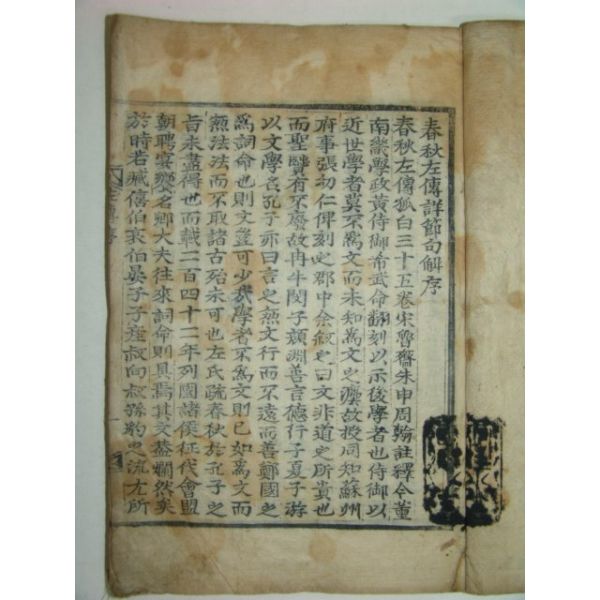 春秋左傳詳節句解序
春秋左傳狐白三十五卷宋魯齋朱申周翰註釋今董
南畿學政黃侍御希武命翻刻以示後學者也侍御以
近世學者莫不爲文而未知爲文之灋故授同知蘇州
府事張幼仁俾刻之郡中余叙之曰文非道之所貴也
而聖賢有不廢故冉牛閔子顏淵善言德行子夏子游
以文學名孔子亦曰言之無文行而不遠而善鄭國之
爲詞命也則文豈可少哉學者不爲文則已如爲文而
無法法而不取諸古殆未可也左氏疏春秋於孔子之
旨未盡得也而載二百四十二年列國諸侯征伐會盟
朝聘宴饗名卿大夫往來詞命則具焉其文蓋爛然矣
於時若臧僖伯哀伯晏子子產叔向叔孫豹之流尤所